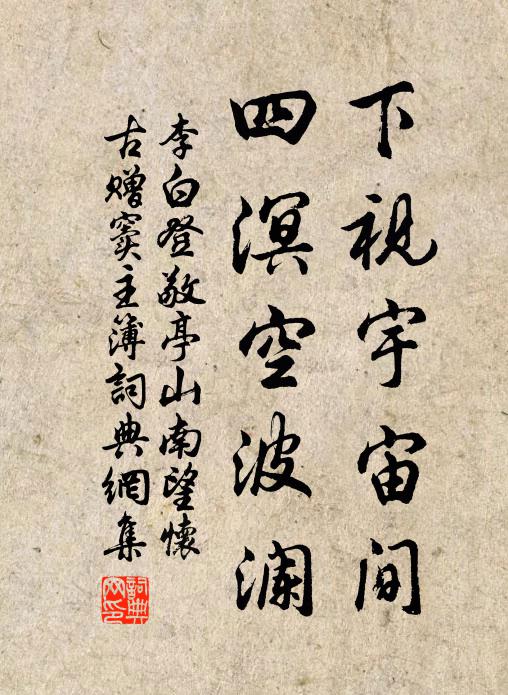 下視宇宙間
四溟空波瀾
李白登敬亭山南望懷
古贈竇主簿詞典網集
詞典
網印